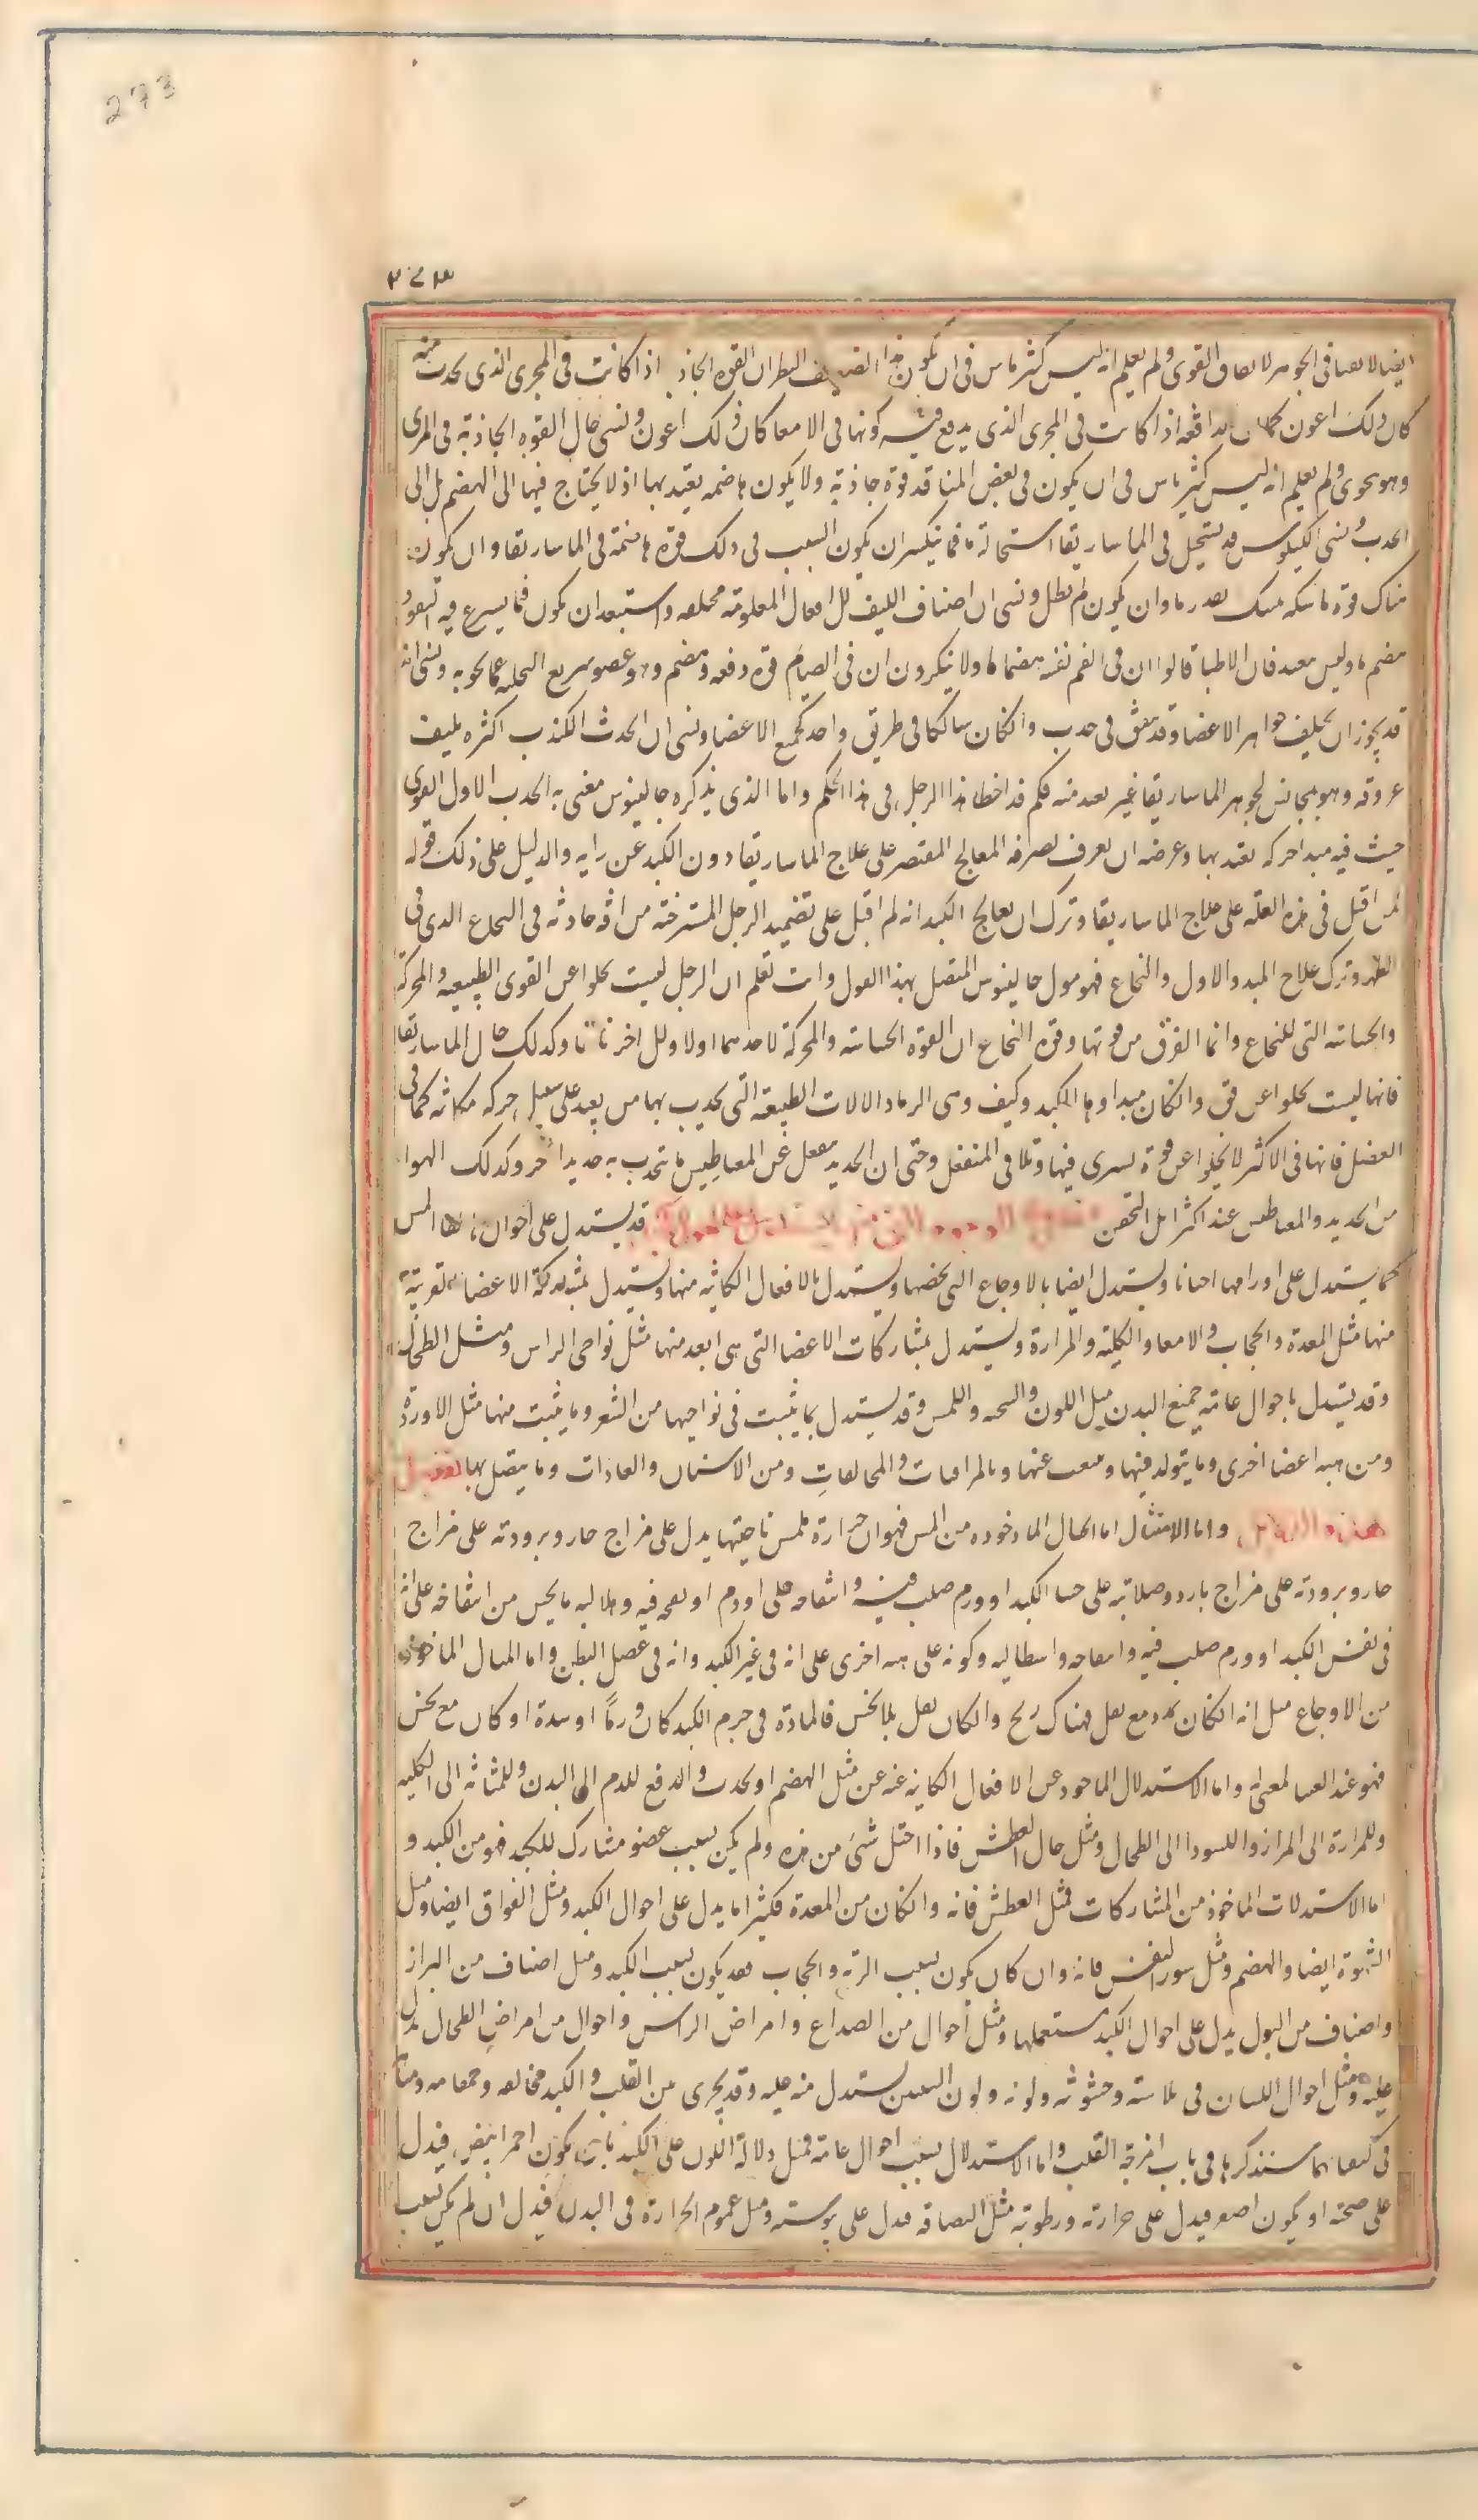 273
٢٧٣
ايضا لا لصا فى الجوهر لا لصاق القوى ولم يعلم انه ليس كثر باس فى ان يكون هذا القوه الجاذبه اذا كانت فى المجرى الذى يحدث منه
كان ذلك اعون كما ان الدافعه اذا كانت فى المجرى الذى يدفع فيه كونها فى الامعا كان ذلك اعون ونسى حال القوه الجاذبة فى المرى
وهو مجرى ولم يعلم انه ليس كثير باس فى ان يكون فى بعض المنافذ قوة جاذبة ولا يكون هاضمه يعتد بها اذ لا يحتاج فيها الى الهضم بل الى
الجذب ونسى الكيلوس قد يستحيل فى الماساريقا استحالة ما فما ينكر ان يكون السبب فى ذلك قوة هاضمة فى الماساريقا وان يكون
هناك قوة ماسكه تمسك بقدر ما وان يكون لم يطل ونسى ان اصناف الليف للافعال المعلومة مختلفه واستبعد ان يكون فيما يسرع فيه النفوذ
هضم ما وليس ببعيد فان الاطبا قالوا ان فى الفم نفسه هضما ما ولا ينكرون ان فى الصيام قوة دفعه وهضم وهو عضو سريع التخليه عما يحويه ونسى انه
قد يجوز ان يختلف جواهر الاعضا وقد يتفق فى جذب وان كان سالكا فى طريق واحد كجميع الاعضا ونسى ان الجذب للكبد اكثره بليف
عروقه وهو مجانس لجوهر الماساريقا غير بعيد منه فكم قد اخطا هذا الرجل فى هذا الحكم واما الذى يذكره جالينوس فعنى به الجذب الاول القوى
حيث فيه مبدا حركه يعتد بها وغرضه ان يعرف يصرف المعالج المقتصر على علاج الماساريقا دون الكبد عن رايه والدليل على ذلك قوله
لمن اقبل فى هذه العلة على علاج الماساريقا وترك ان يعالج الكبد انه لم اقبل على تضميد الرجل المسترخيه من افه حادثه فى النخاع الذى فى
الظهر وترك علاج المبدو الاول والنخاع فهو قول جالينوس المتصل بهذا القول وانت تعلم ان الرجل ليست تخلو اعن القوى الطبيعيه والمحركة
والحساسة التى للنخاع وانما الفرق من قوتها وقوة النخاع ان القوة الحساسة والمحركة لاحدهما اولا وللاخر ثانيا وكذلك حال الماساريقا
فانها ليست تخلوا عن قوة وان كان مبداوها الكبد وكيف وهى الات الطبيعة التى يجذب بها من بعيد على سبيل حركه مكانيه كما فى
العضل فانها فى الاكثر لا يخلوا عن قوة يسرى فيها وتلاقى المنفعل وحتى ان الحديد ينفعل عن المغناطيس ما يجذب به حديدا اخر وكذلك الهوا
من الحديد والمغناطيس عند اكثر اهل التحقيق قد يستدل على احوالها بلقا المس
كما يستدل على اورامها احيانا ويستدل ايضا بالاوجاع التى يخصها ويستدل بالافعال الكاينه منها ويستدل بمشاركة الاعضا القريبة
منها مثل المعدة والحجاب والامعا والكلية والمرارة ويستدل بمشاركات الاعضا التى هى ابعد منها مثل نواحى الراس ومثل الطحال
وقد يستدل باحوال عامة جميع البدن مثل اللون والسحنه واللمس وقد يستدل بما ينبت فى نواحيها من الشعر وما ينبت منها مثل الاوردة
ومن هيه اعضا اخرى وما يتولد فيها وينبعث عنها وبالموافقات والمخالفات ومن الاسنان والعادات وما يتصل بها تفصيل
هذه الدلايل واما الامثال اما الحال الماخوده من المس فهو ان حرارة ملمس ناحيتها يدل على مزاج حار وبرودته على مزاج
حار وبرودته على مزاج بارد وصلابته على جسا الكبد او ورم صلب فيه وانتفاخه على ورم او نفخه فيه وهلاليه ما يحس من انتفاخه على انه
فى نفس الكبد او ورم صلب فيه وانتفاخه واستطاليه وكونه على هيه اخرى على انه فى غير الكبد وانه فى عضل البطن واما المثال الماخوذه
من الاوجاع مثل انه ان كان تمدد مع ثقل فهناك ريح وان كان ثقل بلا نخس فالمادة فى جرم الكبد كان ورمًا او سدة او كان مع نخس
فهو عند الغشا لمغشى واما الاستدلال الماخود عن الافعال الكاينه عنه عن مثل الهضم او يجذب والدفع للدم الى البدن وللمثانه الى الكليه
وللمرارة الى المرار والسودا الى الطحال ومثل حال العطش فاذا اختل شئ من هذه ولم يكن بسبب عضو مشارك للكبد فهو من الكبد و
اما الاستدلات الماخوذ من المشاركات فمثل العطش فانه وان كان من المعدة فكثيرا ما يدل على احوال الكبد ومثل الفواق ايضا ومثل
الشهوة ايضا والهضم ومثل سو التنفس فانه وان كان يكون بسبب الرية والحجاب فقد يكون بسبب الكبد ومثل اصناف من البراز
واصناف من البول يدل على احوال الكبد يستعملها ومثل أحوال من الصداع وامراض الراس واحوال من امراض الطحال يدل
عليه ومثل احوال اللسان فى ملاسته وخشونته ولونه ولون الشفتين يستدل منه عليه وقد يجرى بين القلب والكبد مخالفه ومقاومه وما
فى كيفياتهما سنذكرها فى باب امزجة القلب واما الاستدلال بسبب احوال عامة فمثل دلالة اللون على الكبد بان يكون احمر ابيض فيدل
على صحته او يكون اصفر فيدل على حرارته ورطوبته مثل فيدل على يبوسته ومثل عموم الحرارة فى البدن فيدل ان لم يكن بسبب